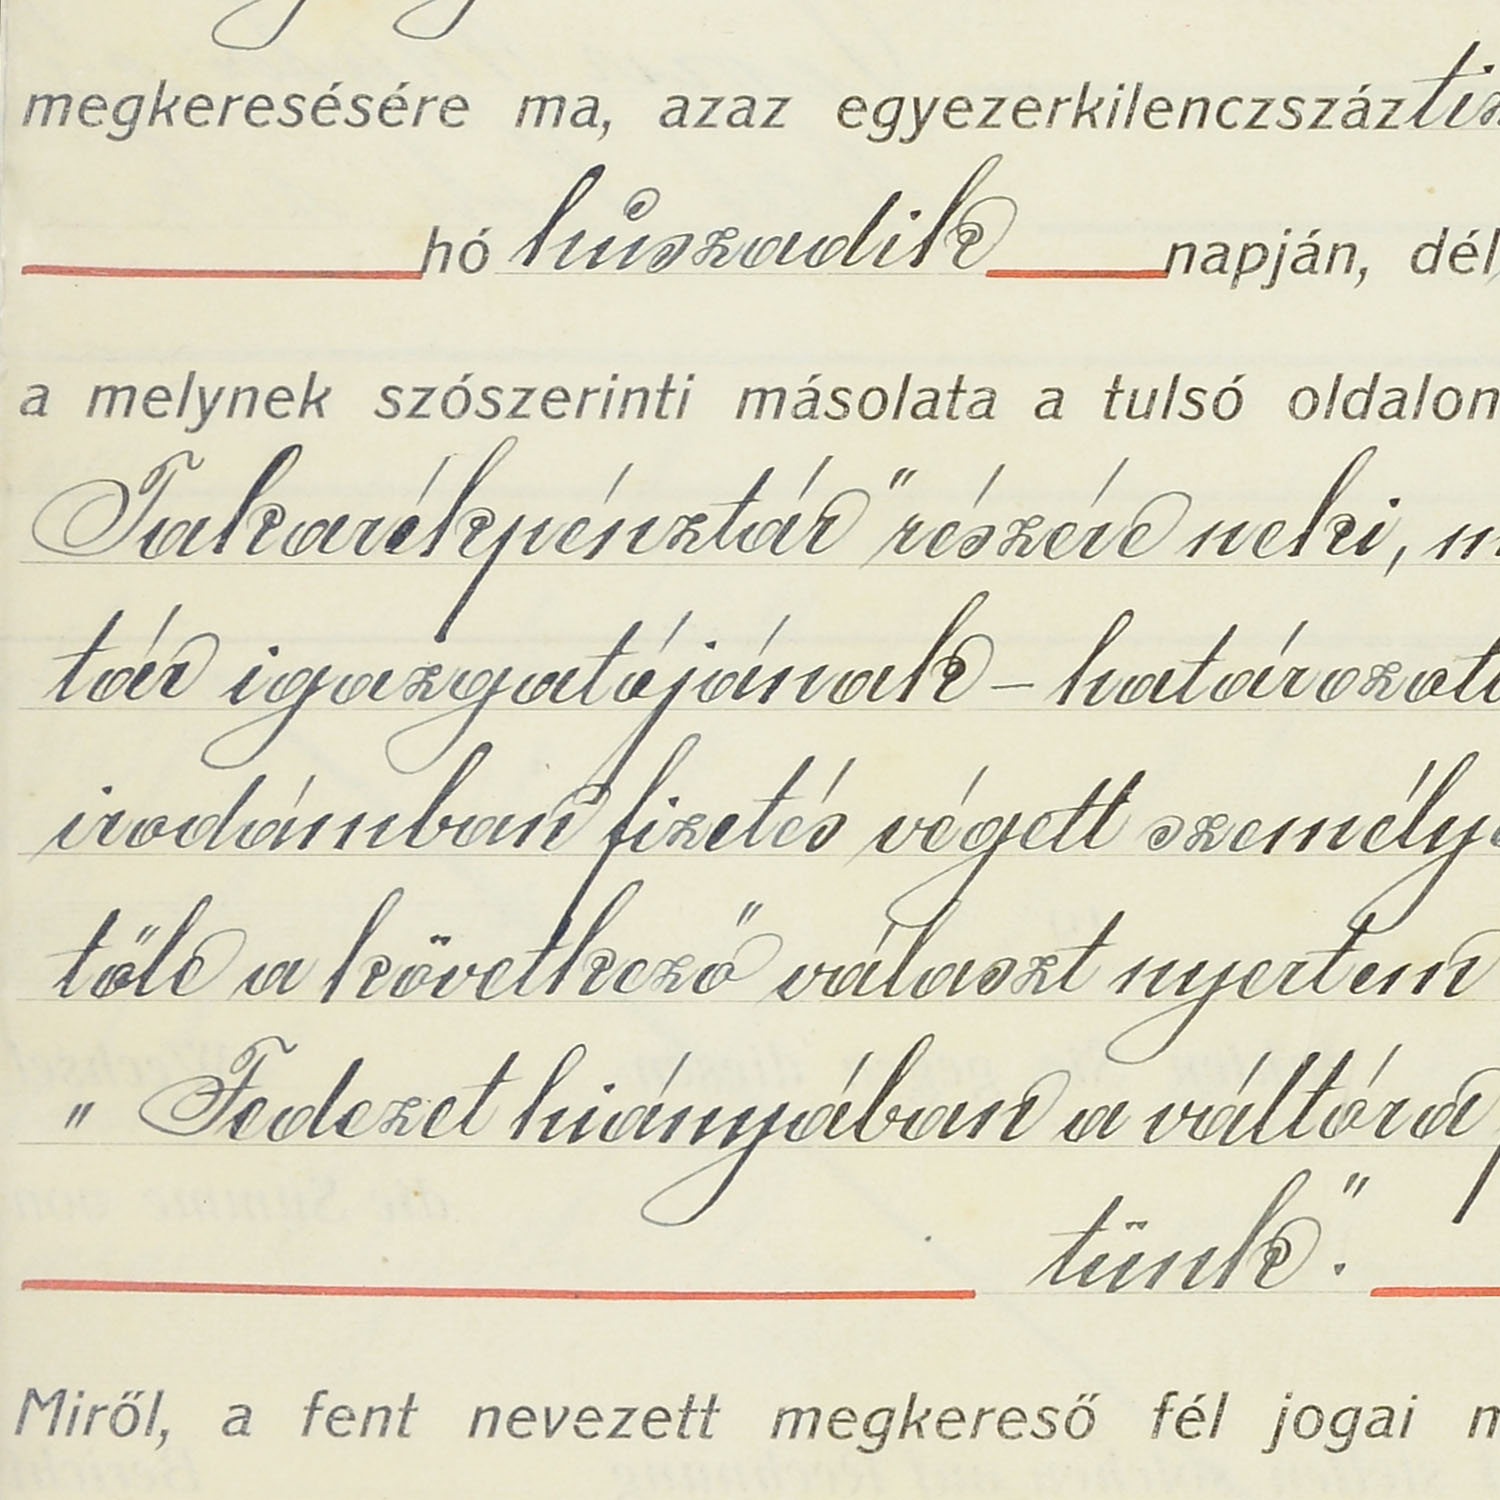 megkeresésére ma, azaz egyezerkilenczszáztiz
hó húszadik napján, dél
a melynek szószerinti másolata a tulsó oldalon
Takarékpénztár" részére neki, m
tár igazgatójának – határozott
irodámban fizetés végett személye
tőle a következő választ nyertem
„ Fedezet hiányában a váltóra
tünk".
Miről, a fent nevezett megkereső fél jogai m